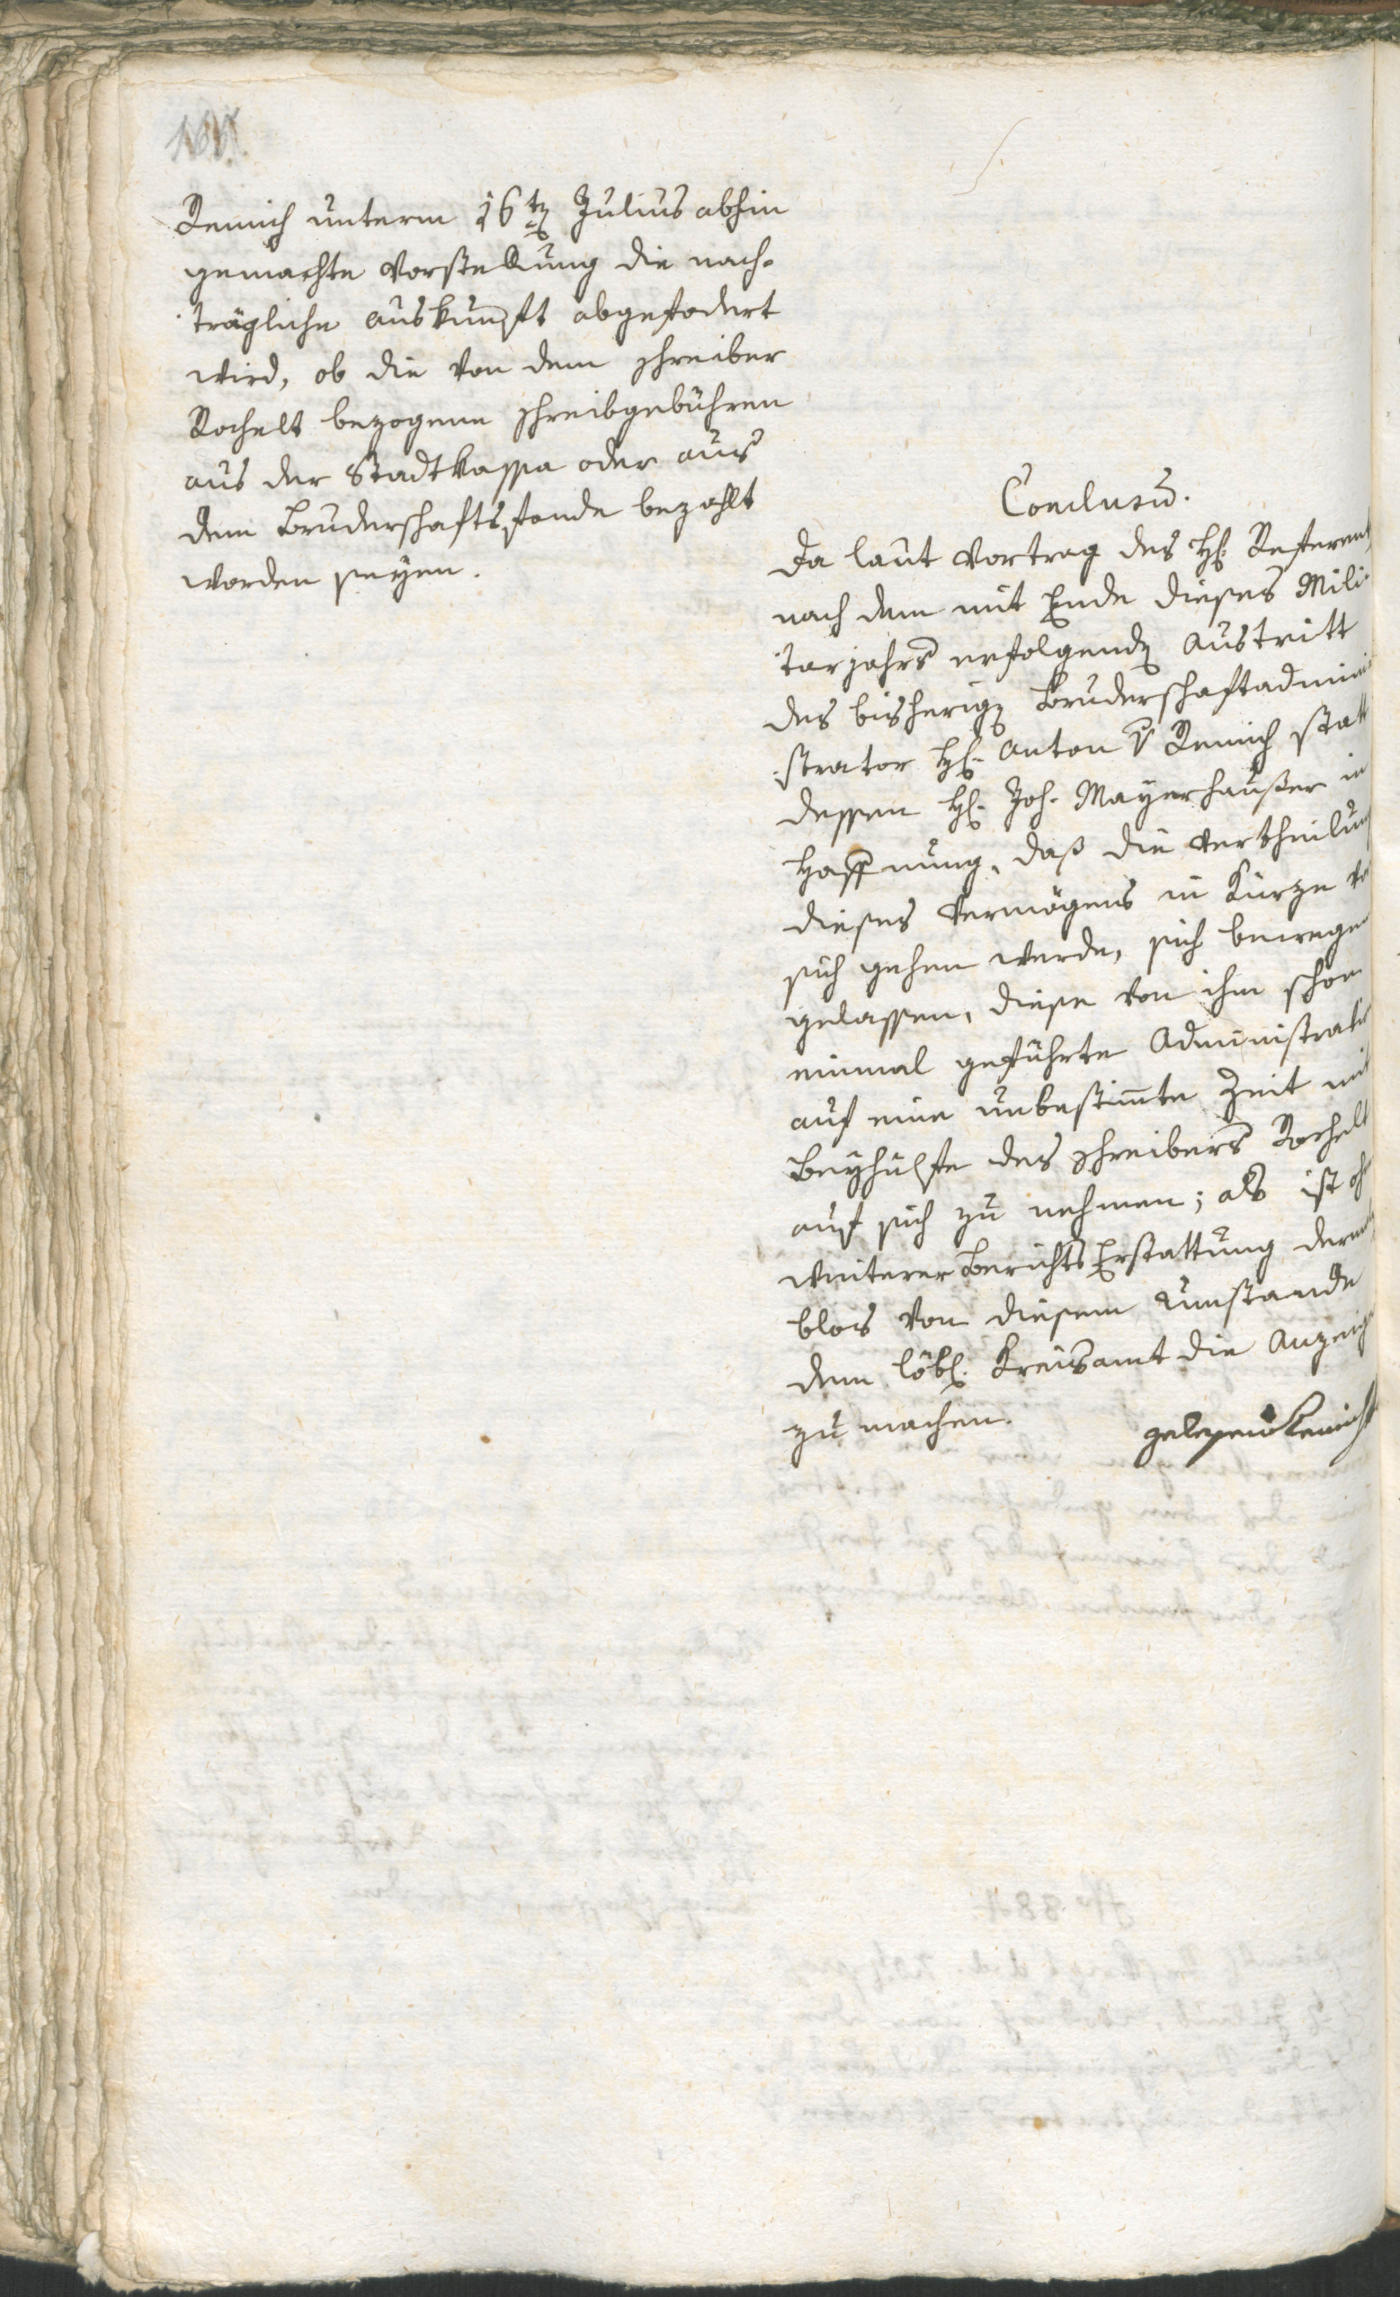 Remich unterm 16ten Julius abhin
gemachte Vorstellung die nach-
trägliche auskunft abgefodert
wird, ob die von dem schreiber
Rochelt bezogene schreibgebühren
aus der Stadtkassa oder aus
dem Bruderschaftsfonde bezahlt
worden seyen.
Conclusum.
Da laut Vortrag des H. Referent
nach dem mit Ende dieses Mili-
tarjahrs erfolgenden Austritt
des bisherigen Bruderschaftadmini
strator H. Anton v Remich statt
dessen H. Joh. Mayrhauser in
Hoffnung, daß die Vertheilung
dieses Vermögens in Kürze vor
sich gehen werde, sich bewegen
gelassen, diese von ihm schon
einmal geführte Administration
auf eine unbestimmte Zeit mit
Beyhülfe des schreibers Rochelt
auf sich zu nehmen; als ist ohne
weiterer Berichts Erstattung
blos von diesem Umstande
dem löbl. Kreisamt die Anzeige
zu machen.
gelesen Remich